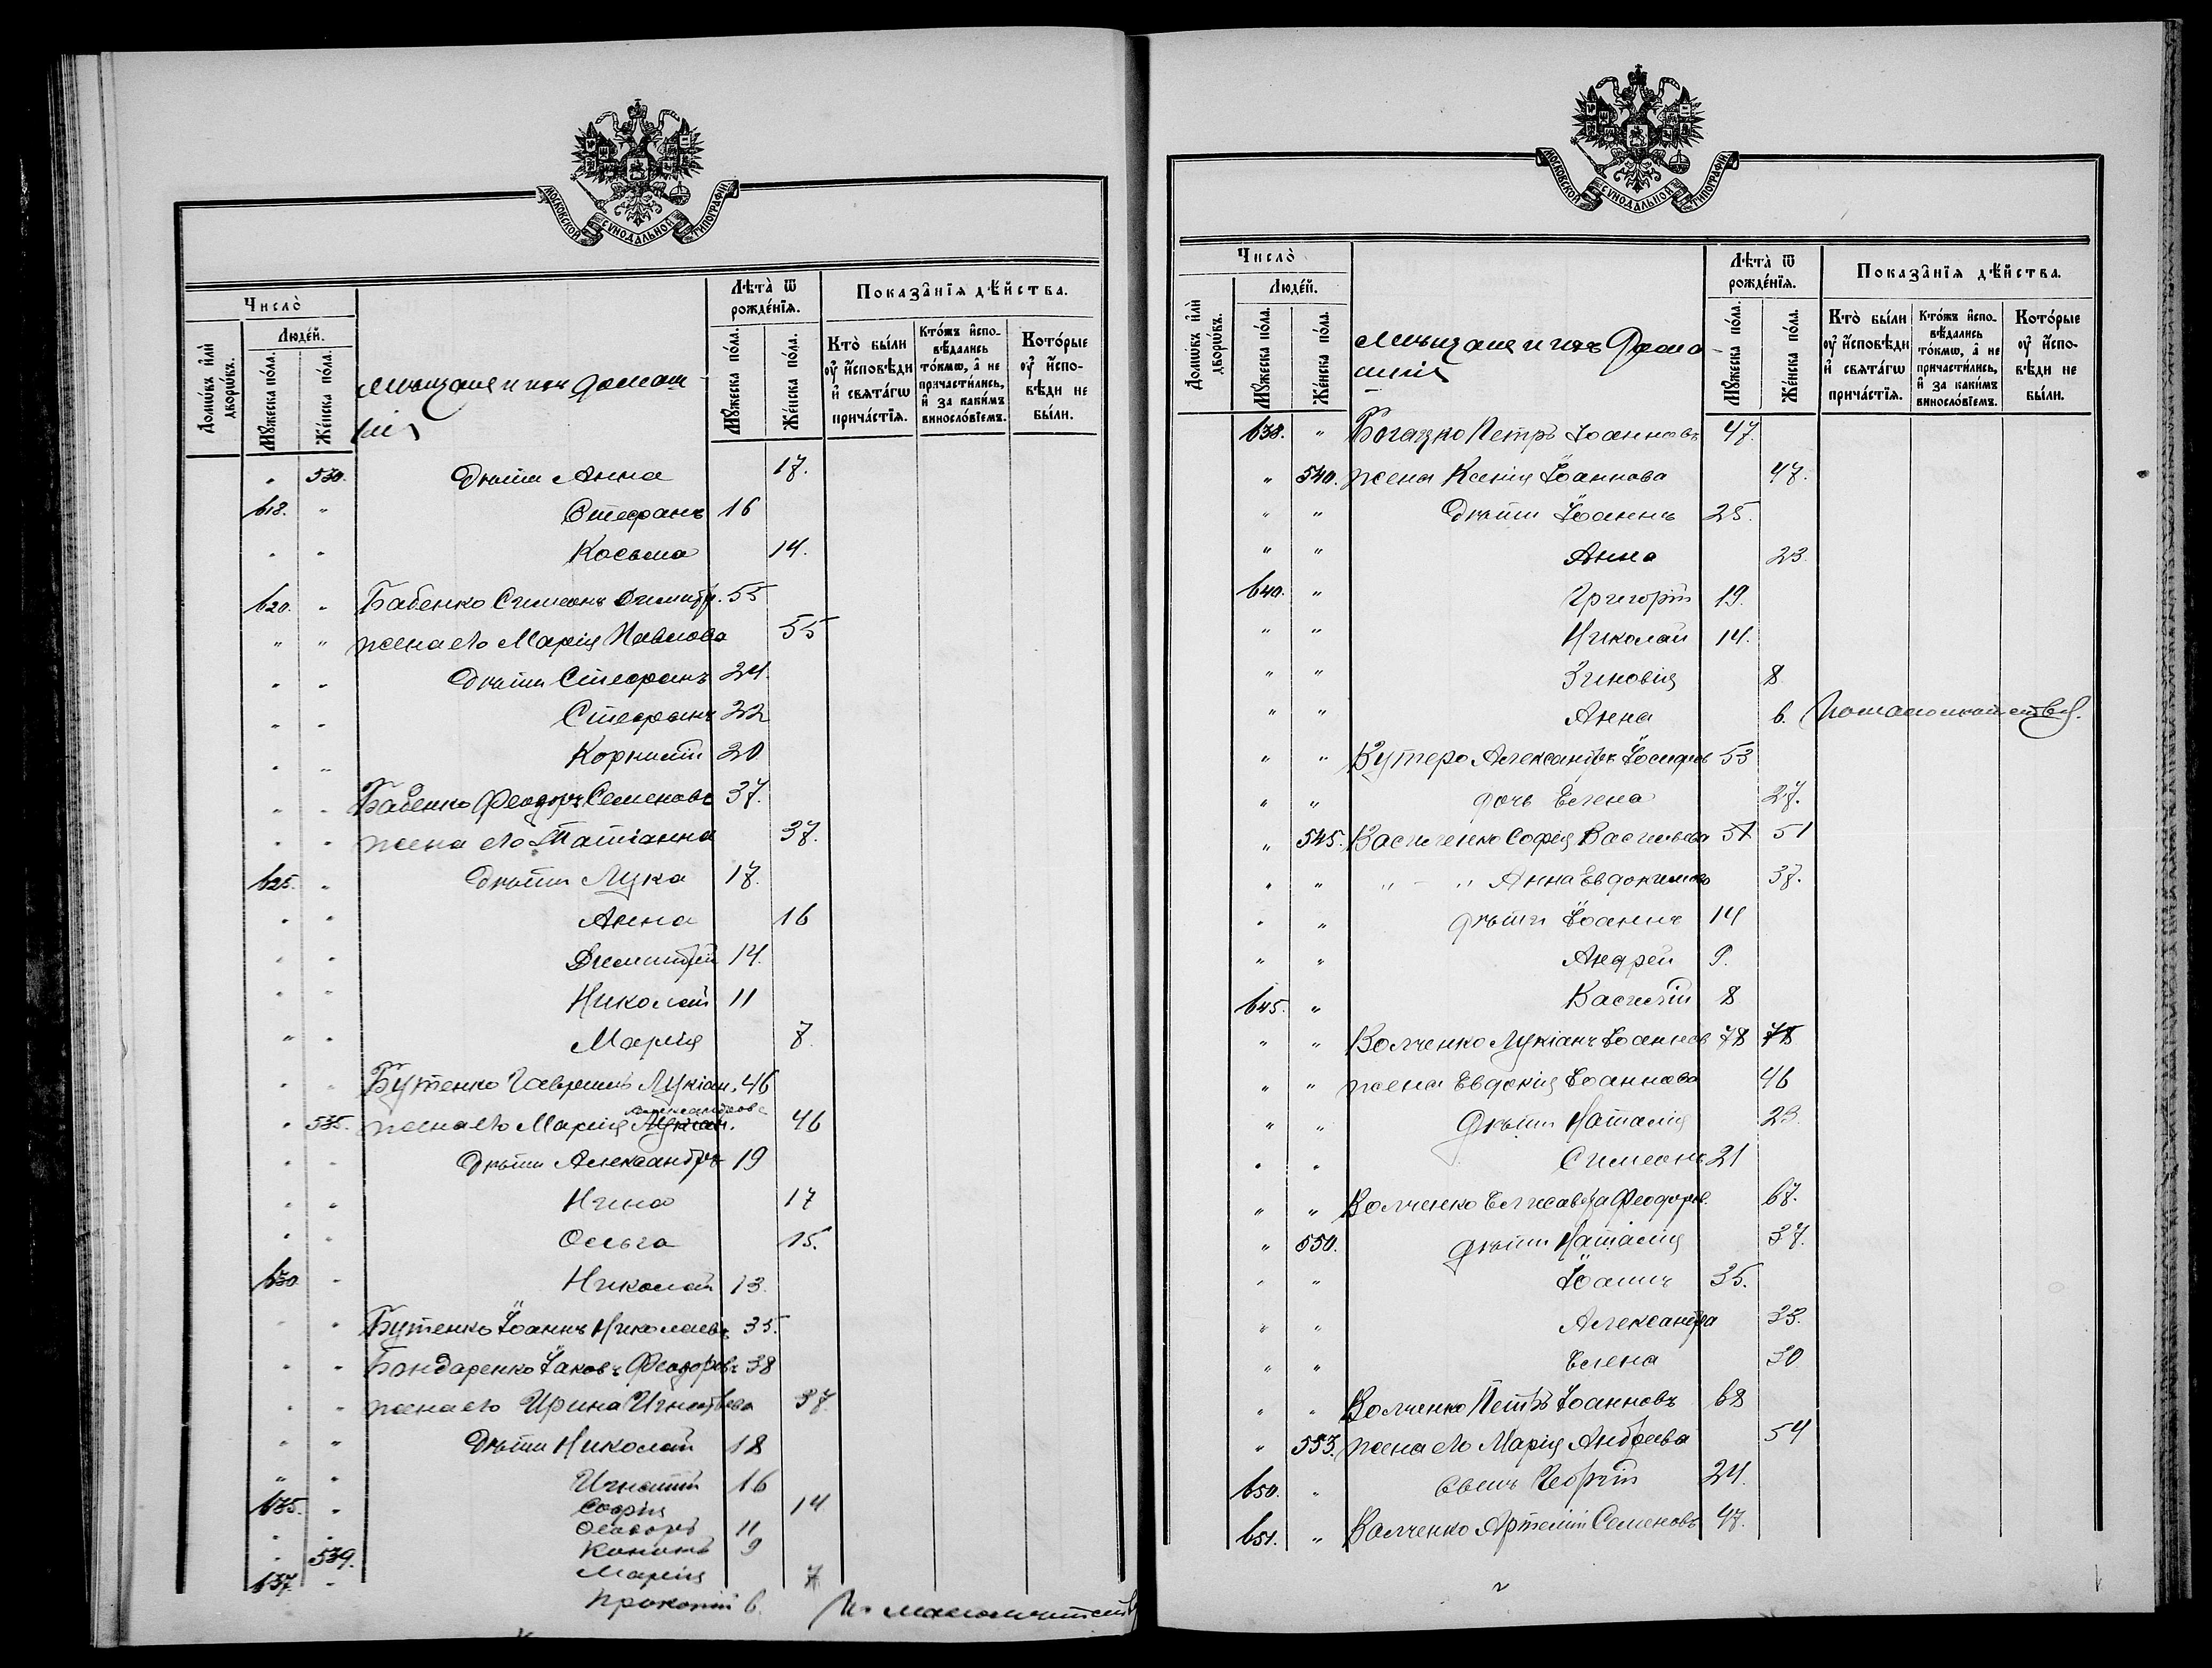 МОСКОВСКОЙ СѴНОДАЛЬНОЙ ТИПОГРАФІИ
Число̀
Лѣта̀ ѿ рожде́нїѧ.
Показа̑нїѧ дѣ́йства.
Домѡ́въ и҆лѝ дворѡ́въ.
Люде́й.
Мꙋ́жеска по́ла.
Же́нска по́ла.
Мꙋ́жеска по́ла.
Же́нска по́ла.
Кто̀ бы́ли оу҆ и҆́сповѣди и҆ свята́гѡ прича́стїѧ.
Кто́жъ и҆спо- вѣ́дались то́кмѡ, а҆ не причасти́лись, и҆ за каки́мъ винослові́емъ.
Кото́рые оу҆ и҆́спо- вѣди не бы́ли.
Мѣщане и ихъ домаш-
ніе
" 530. Дѣти Анна 17.
618. " Стефанъ 16
" " Косьма 14.
620. " Бабенко Симеонъ Димитр. 55
" " жена его Марія Павлова 55
" " Дѣти Стефанъ 24.
" " Стефанъ 22
" " Корнилій 20
" " Бабенко Феодоръ Семеновъ 37.
" " жена его Татіанна 37.
625. " Дѣти Лука 17.
" " Анна 16
" " Димитрій 14.
" " Николай 11
" " Марія 7.
" " Бутенко Гавріилъ Лукіан. 46
Александрова
" 535. жена его Марія Лукіан. 46
" " Дѣти Александръ 19
" " Нина 17
" " Ольга 15.
630 " Николай 13.
" " Бутенко Іоаннъ Николаевъ 35.
" " Бондаренко Іаковъ Феодоровъ 38
" " жена его Ирина Игнатьева 37
" " Дѣти Николай 18
" " Игнатій 16
635. " Софія 14
" " Феодоръ 11
" 539. Кононъ 9
637. " Марія 7
Прокопій 6. По малолѣтств
МОСКОВСКОЙ СѴНОДАЛЬНОЙ ТИПОГРАФІИ
Число̀
Лѣта̀ ѿ рожде́нїѧ.
Показа̑нїѧ дѣ́йства.
Домѡ́въ и҆лѝ дворѡ́въ.
Люде́й.
Мꙋ́жеска по́ла.
Же́нска по́ла.
Мꙋ́жеска по́ла.
Же́нска по́ла.
Кто̀ бы́ли оу҆ и҆́сповѣди и҆ свята́гѡ прича́стїѧ.
Кто́жъ и҆спо- вѣ́дались то́кмѡ, а҆ не причасти́лись, и҆ за каки́мъ винослові́емъ.
Кото́рые оу҆ и҆́спо- вѣди не бы́ли.
Мѣщане и ихъ дома-
шніе
638. " Богацко Петръ Іоанновъ 47.
" 540. жена Ксенія Іоаннова 47.
" " Дѣти Іоаннъ 25.
" " Анна 23
640. " Григорій 19.
" " Николай 14.
" " Зиновія 8
" " Анна 6. По малолѣтств.
" " Бутеро Александръ Іосифов 53
" " дочь Елена 27.
" 545. Василенко Софія Васильева 51 51
" " " – " Анна Евдокимова 37.
" " дѣти Іоаннъ 14
" " Андрей 9.
645. " Василій 8
" " Волченко Лукіанъ Іоаннов 78 78
" " жена Евдокія Іоаннова 46
" " Дѣти Наталія 23.
" " Симеонъ 21
" " Волченко Елисавета Феодоров. 67.
" 550. дѣти Наталія 37.
" " Іоаннъ 35.
" " Александра 33.
" " Елена 30
" " Волченко Петръ Іоанновъ 68
" 553. жена его Марія Андреева 54
650. " сынъ Георгій 24.
651. " Волченко Артемій Семеновъ 47.